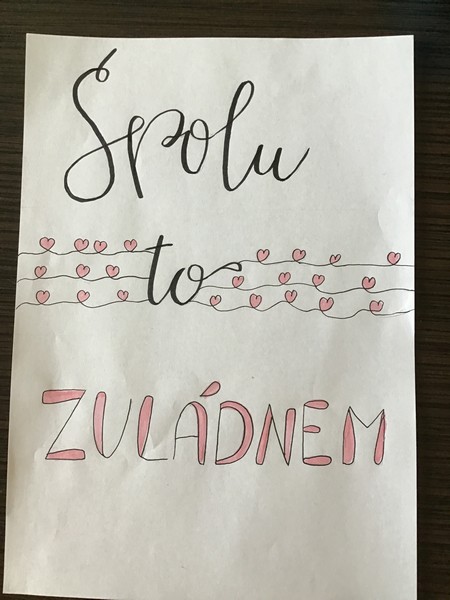 Spolu
to
ZULÁDNEM